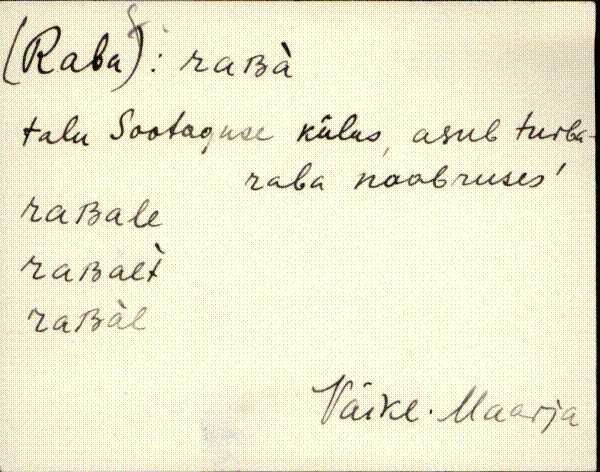 (Raba): raʙà
talu Sootaguse külas, asub turba-
raba naabruses!
raʙale
raʙalt̀
raʙàl
Väike-Maarja